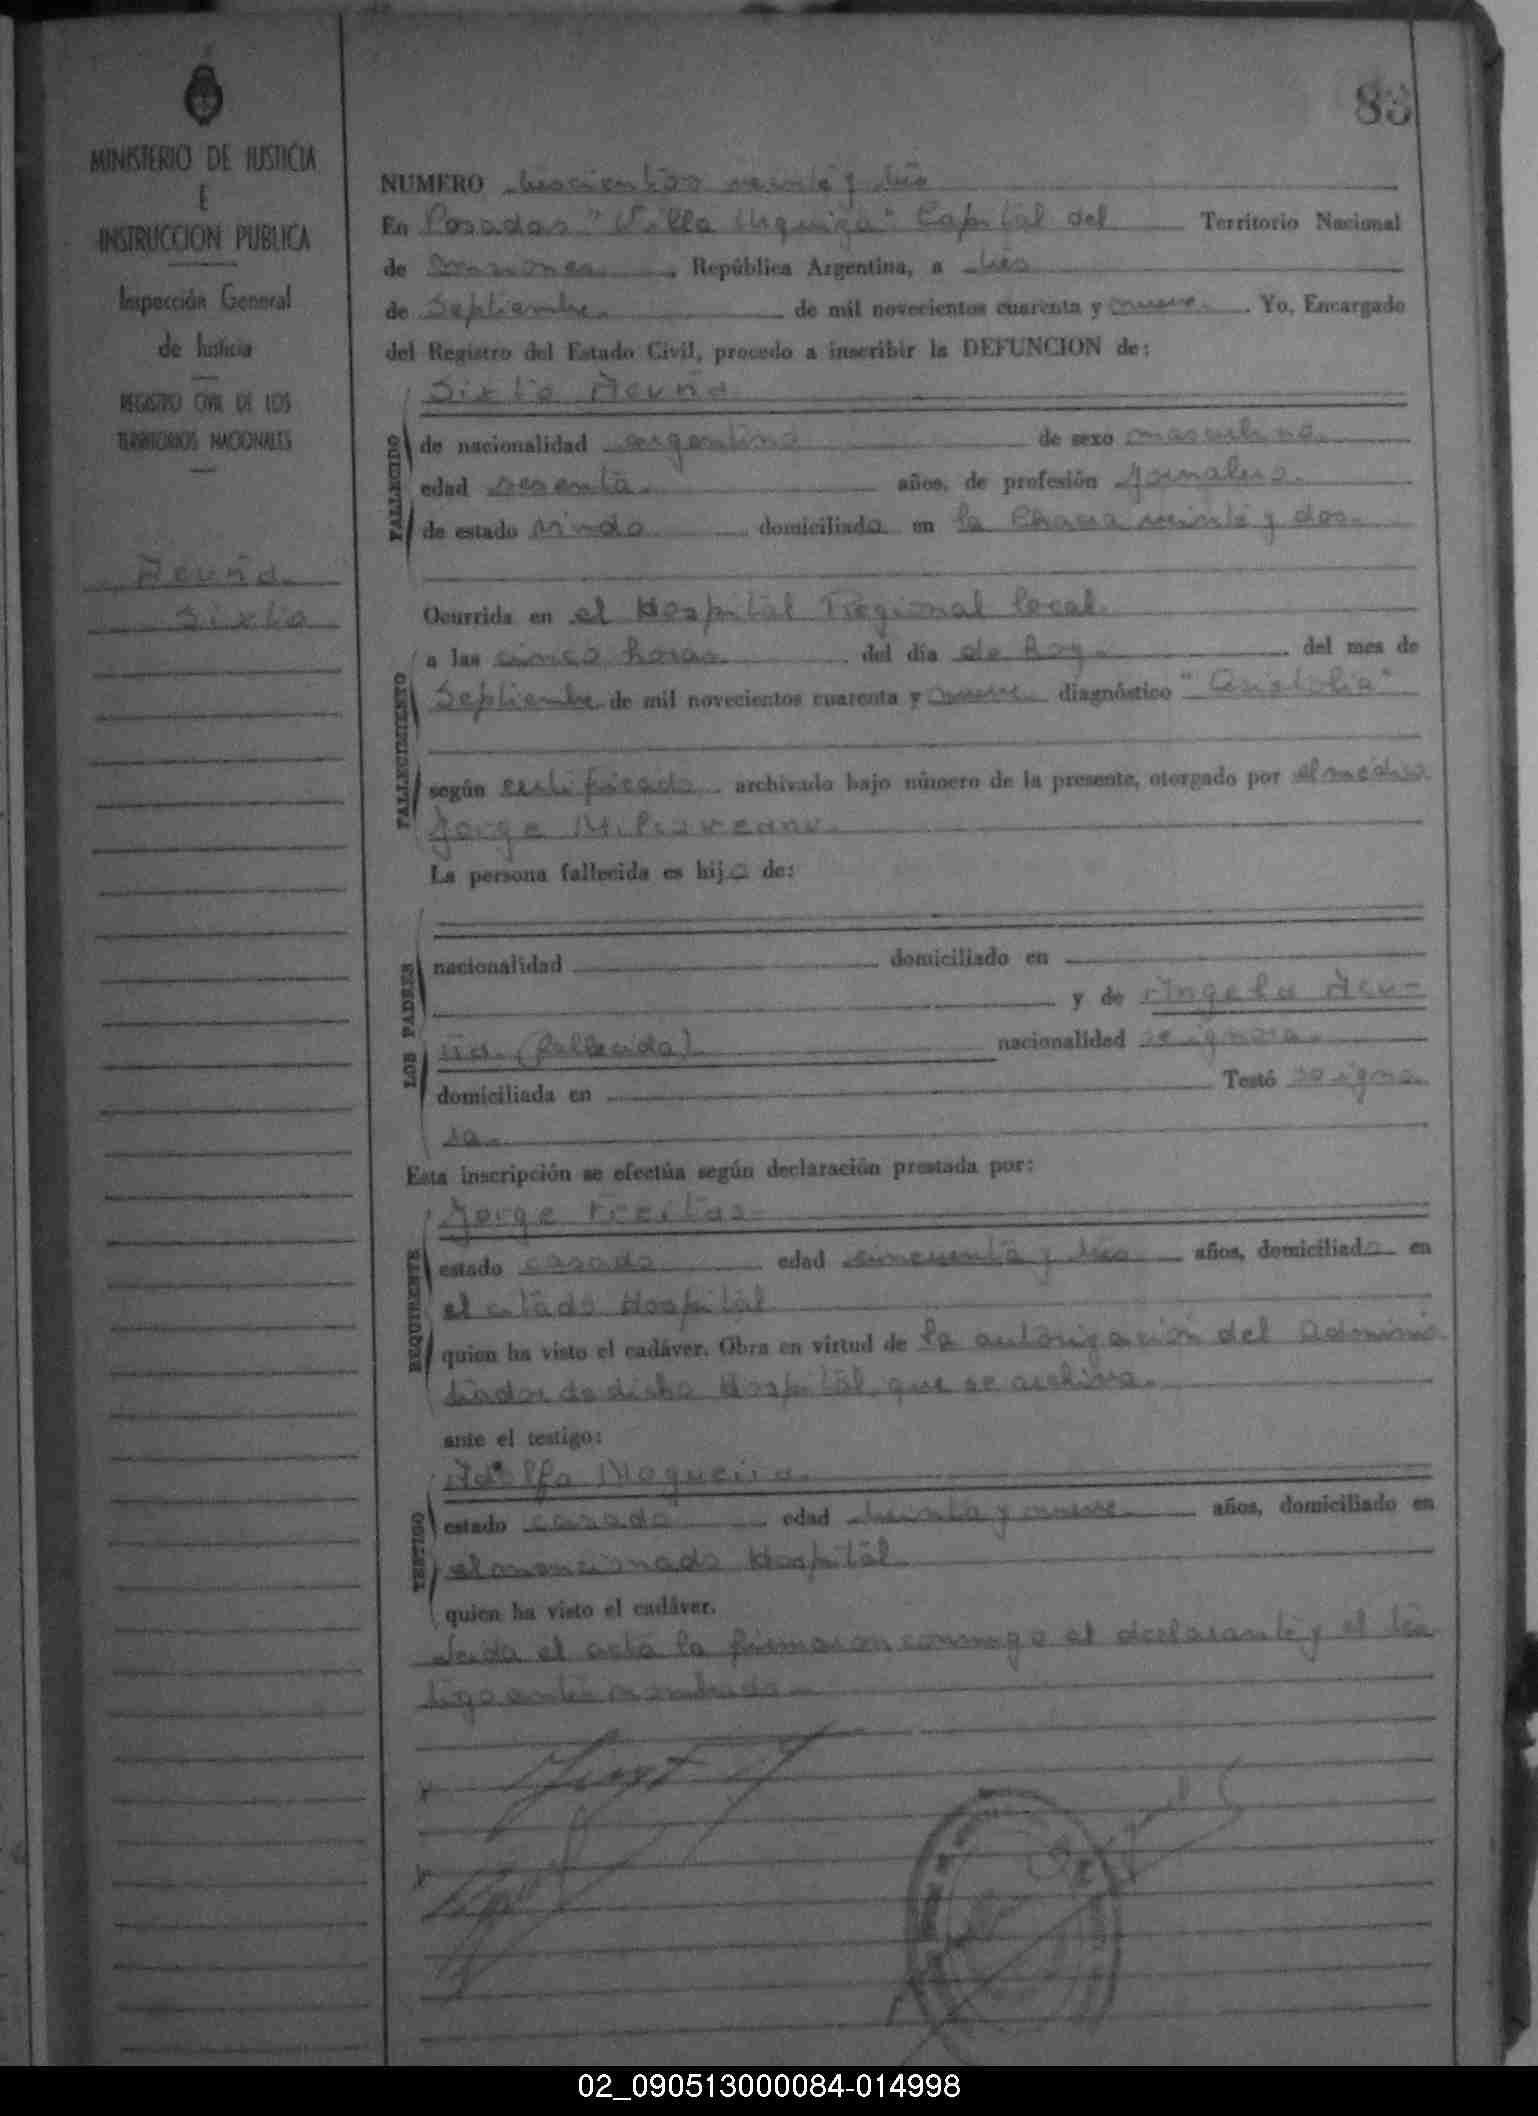 83
MINISTERIO DE JUSTICIA
E
INSTRUCCION PUBLICA
Inspección General
de Justicia
REGISTRO CIVIL DE LOS
TERRITORIOS NACIONALES
Acuña
Sixto
NUMERO trescientos veinte y tres
En Posadas "Villa Urquiza" Capital del Territorio Nacional
de Misiones República Argentina, a tres
de Septiembre de mil novecientos cuarenta y nueve. Yo, Encargado
del Registro del Estado Civil, procedo a inscribir la DEFUNCION de:
Sixto Acuña
FALLECIDO
de nacionalidad argentina de sexo masculino
edad sesenta años, de profesión jornalero.
de estado viudo domiciliado en la Chacra veinte y dos.
Ocurrida en el Hospital Regional local.
FALLECIMIENTO
a las cinco horas del día de hoy. del mes de
Septiembre de mil novecientos cuarenta y nueve diagnóstico "Asistolia"
según certificado archivado bajo número de la presente, otorgado por el médico
Jorge
La persona fallecida es hijo de:
LOS PADRES
nacionalidad domiciliado en
y de Angela Acu-
ña. (fallecida) nacionalidad se ignora.
domiciliada en Testó se igno-
ra.
Esta inscripción se efectúa según declaración prestada por:
REQUIRENTE
Jorge Freitas
estado casado edad cincuenta y tres años, domiciliado en
el citado Hospital
quien ha visto el cadáver. Obra en virtud de la autorización del Adminis
trador de dicho Hospital, que se archiva.
ante el testigo:
TESTIGO
Adolfo Nogueira.
estado casado edad treinta y nueve años, domiciliado en
el mencionado Hospital
quien ha visto el cadáver.
Leida el acta la firmaron conmigo el declarante y el tes
tigo antes nombrado.
02_090513000084-014998